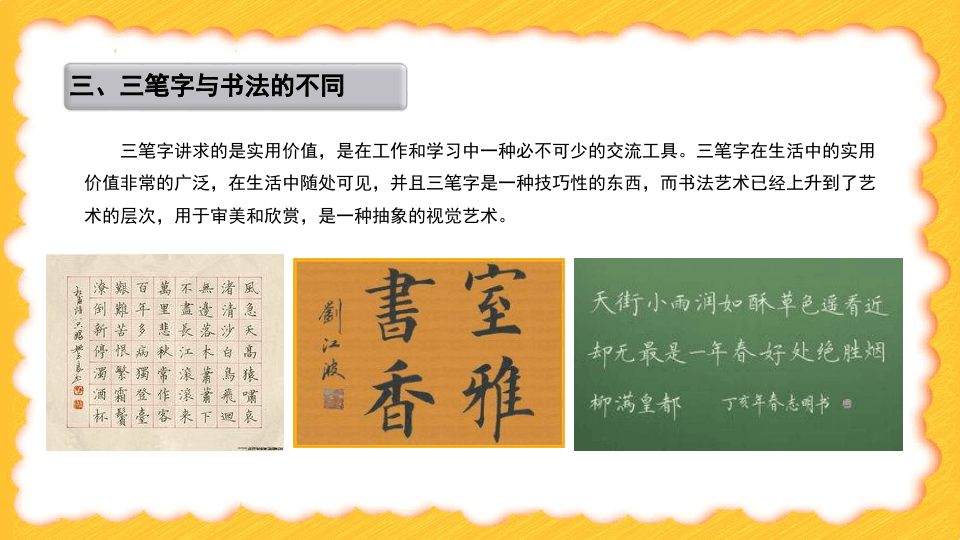 三、三笔字与书法的不同
三笔字讲求的是实用价值，是在工作和学习中一种必不可少的交流工具。三笔字在生活中的实用
价值非常的广泛，在生活中随处可见，并且三笔字是一种技巧性的东西，而书法艺术已经上升到了艺
术的层次，用于审美和欣赏，是一种抽象的视觉艺术。
風急天高猿嘯哀
渚清沙白鳥飛迴
無邊落木蕭蕭下
不盡長江滾滾来
萬里悲秋常作客
百年多病獨登臺
艱難苦恨繁霜鬢
潦倒新停濁酒杯
室雅
書香
劉江波
天街小雨润如酥草色遥看近
却无最是一年春好处绝胜烟
柳满皇都 丁亥年春志明书